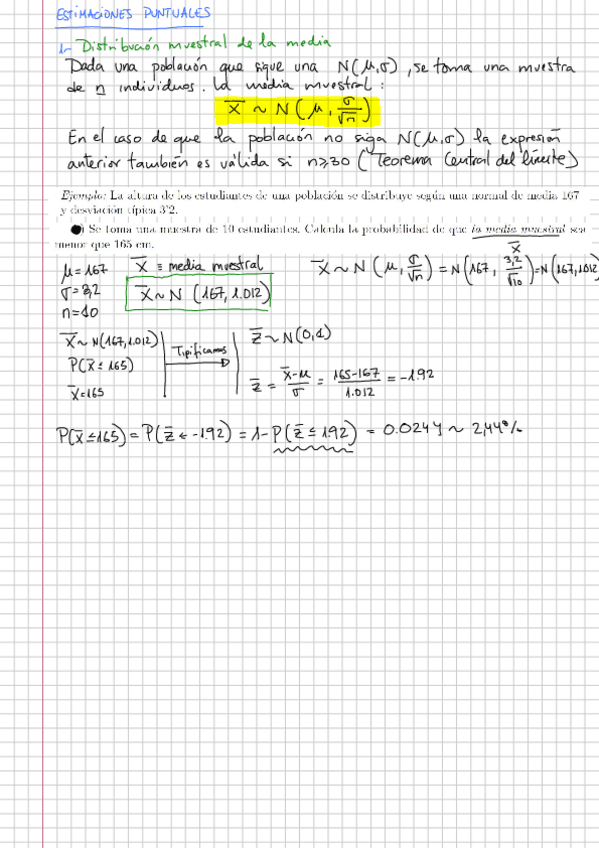 ESTIMACIONES PUNTUALES
1- Distribución muestral de la media
Dada una población que sigue una N(μ,σ), se toma una muestra
de n individuos. La media muestral:
X̄ ~ N(μ, σ/√n)
En el caso de que la población no siga N(μ,σ) la expresión
anterior también es válida si n≥30 (Teorema Central del límite)
Ejemplo: La altura de los estudiantes de una población se distribuye según una normal de media 167
y desviación típica 3'2.
) Se toma una muestra de 10 estudiantes. Calcula la probabilidad de que la media muestral sea
menor que 165 cm.
X̄
μ=167
σ=3,2
n=10
X̄ ≡ media muestral
X̄ ~ N (167, 1.012)
X̄ ~ N (μ, σ/√n) = N(167, 3,2/√10) = N(167,1.012)
X̄ ~ N(167,1.012)
P(X̄ ≤ 165)
X̄=165
Tipificamos
Z̄ ~ N(0,1)
Z̄ = X̄-μ/σ = 165-167/1.012 = -1.92
P(X̄ ≤ 165) = P(Z̄ ≤ -1.92) = 1-P(Z̄ ≤ 1.92) = 0.0244 ~ 2,44%